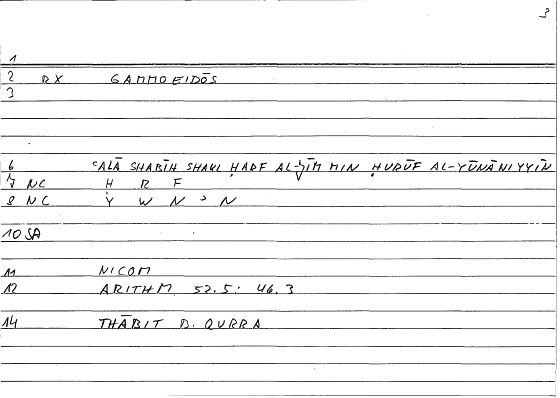 3
1
2 RX GAMMOEIDŌS
3
6 ʿALĀ SHABĪH SHAKL ḤARF AL-ǦĪM MIN ḤURŪF AL-YŪNĀNIYYĪN
7 NC Ḥ R F
8 NC Y W N ʾ N
10 SA
11 NICOM
12 ARITHM. 52.5: 46.3
14 THĀBIT B. QURRA